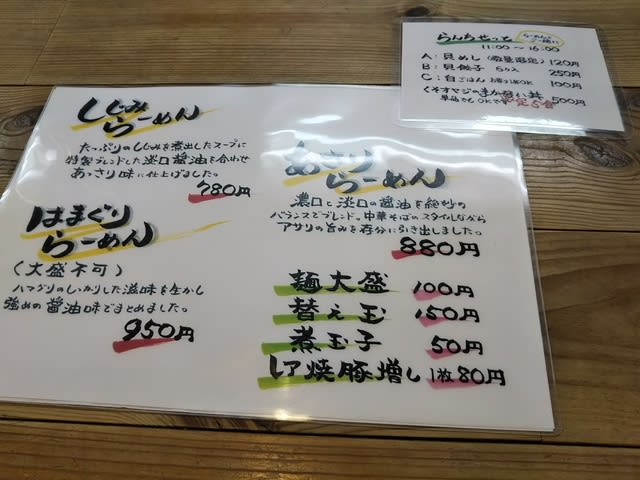 しじみ
らーめん
たっぷりのしじみを煮出したスープに
特製ブレンドした淡口醤油を合わせ
あっさり味に仕上げました。
780円
はまぐり
らーめん
(大盛不可)
ハマグリのしっかりした滋味を生かし
強めの醤油味でまとめました。
950円
あさり
らーめん
濃口と淡口の醤油を絶妙の
バランスでブレンド。中華そばのスタイルながら
アサリの旨みを存分に引き出しました。
880円
麺大盛 100円
替え玉 150円
煮玉子 50円
レア焼豚増し 1枚80円
らんちせっと
らーめんと
ご一緒に
11:00～16:00
A:貝めし(数量限定) 120円
B:貝餃子 5ケ入 250円
C:白ごはん 100円
500円